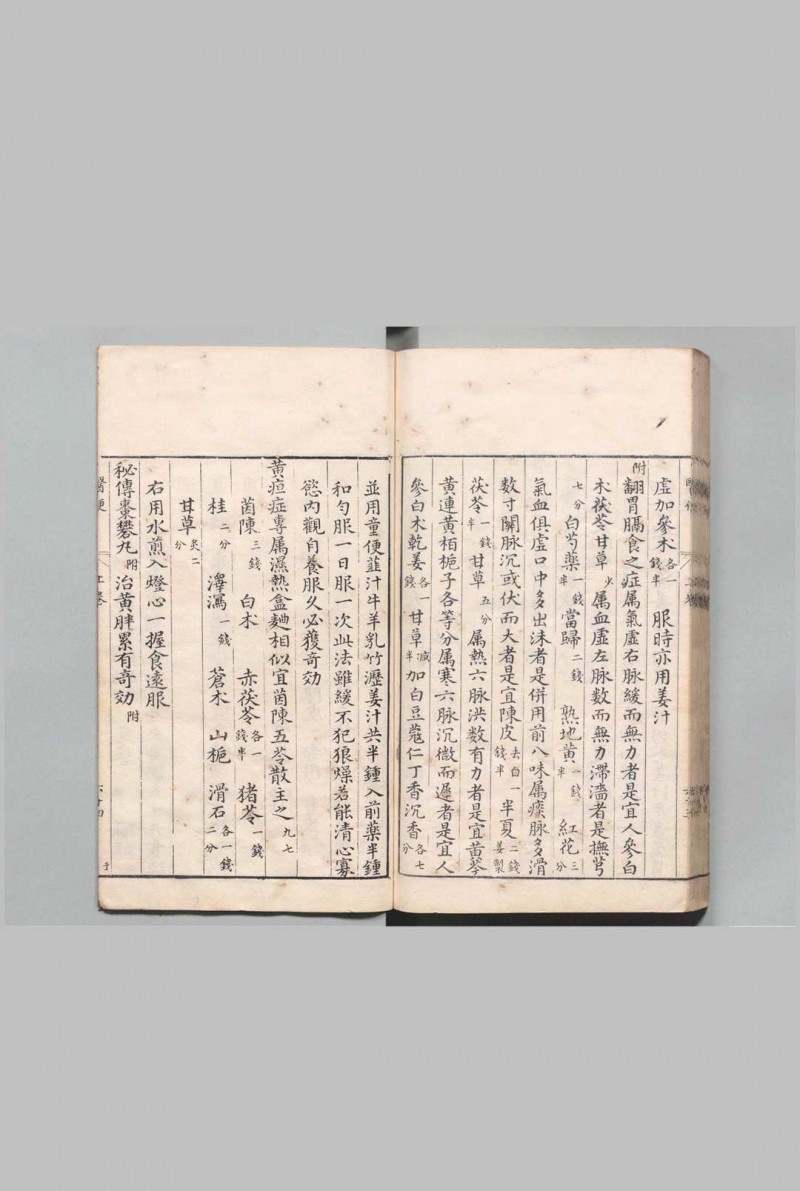 虛加參朮各一錢半 服時亦用姜汁
附翻胃膈食之症属氣虛右脉緩而無力者是宜人參白
朮茯苓甘草少属血虛左脉数而無力滯濇者是撫芎
七分白芍藥一錢半當歸二錢 熟地黄一錢半 紅花三分
氣血俱虛口中多出沫者是併用前八味属痰脉多滑
数寸關脉沉或伏而大者是宜陳皮去白一錢半半夏二錢姜製
茯苓一錢半甘草五分属熱六脉洪数有力者是宜黄芩
黄連黄栢栀子各等分属寒六脉沉微而遲者是宜人
參白朮乾姜各一錢甘草减半加白豆蔻仁丁香沉香各七分
並用童便韮汁牛羊乳竹瀝姜汁共半鍾入前藥半鍾
和勻服一日服一次此法雖緩不犯狼燥若能清心寡
慾內觀自養服久必獲奇効
黄疸症專属濕熱盒麯相似宜茵陳五苓散主之九七
茵陳三錢 白朮 赤茯苓各一錢半 猪苓一錢
桂二分 澤瀉一錢 蒼朮 山栀 滑石各一錢二分
甘草炙二分
右用水煎入燈心一握食遠服
秘傳棗礬丸附治黄胖累有奇効附
醫便